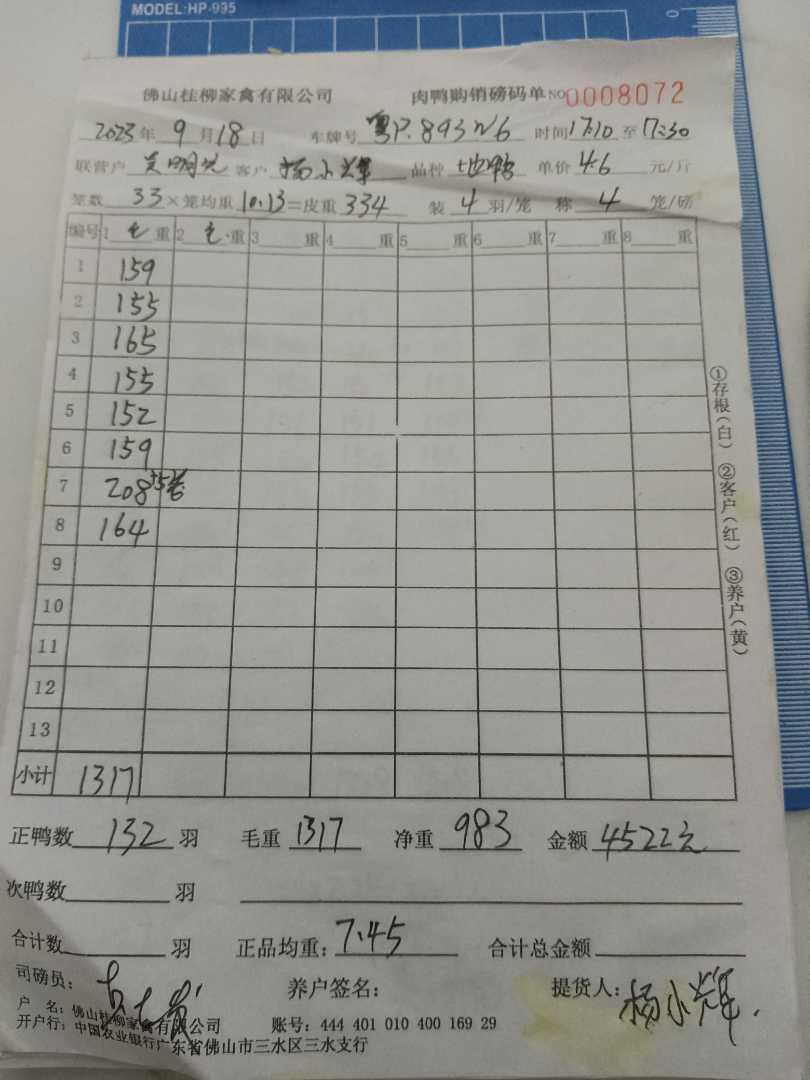 MODEL:HP-995
佛山桂柳家禽有限公司 肉鸭购销磅码单 NO 0008072
2023年 9月18日 车牌号 粤P.893N6 时间17:10至17:30
联营户 客户 杨小辉 品种 地鸭 单价 4.6 元/斤
笼数 33×笼均重10.13=皮重334 装 4 羽/笼 称 4 笼/磅
编号 1 毛重 2 毛重 3 重 4 重 5 重 6 重 7 重 8 重
1 159
2 155
3 165
4 155
5 152
6 159
7 208
8 164
9
10
11
12
13
小计 1317
正鸭数 132 羽 毛重 1317 净重 983 金额 4522元
次鸭数 羽
合计数 羽 正品均重: 7.45 合计总金额
司磅员: 养户签名: 提货人: 杨小辉.
户 名: 佛山桂柳家禽有限公司 账号: 444 401 010 400 169 29
开户行: 中国农业银行广东省佛山市三水区三水支行
①存根(白) ②客户(红) ③养户(黄)